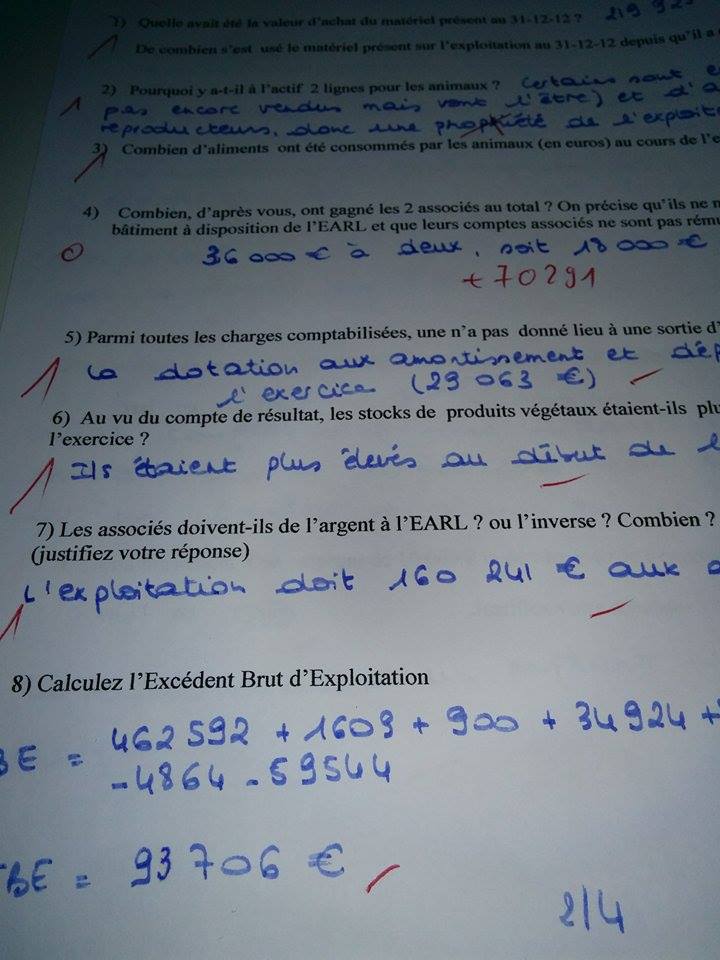 1) Quelle avait été la valeur d'achat du matériel présent au 31-12-12 ? 219 92
1
De combien s'est usé le matériel présent sur l'exploitation au 31-12-12 depuis qu'il a
2) Pourquoi y a-t-il à l'actif 2 lignes pour les animaux ? Certains sont e
1 pas encore vendus mais vont l'être) et d'a
reproducteurs, donc une propriété de l'exploit
3) Combien d'aliments ont été consommés par les animaux (en euros) au cours de l'e
1
4) Combien, d'après vous, ont gagné les 2 associés au total ? On précise qu'ils ne m
bâtiment à disposition de l'EARL et que leurs comptes associés ne sont pas rému
0 36 000 € à deux, soit 18 000 €
+ 70291
5) Parmi toutes les charges comptabilisées, une n'a pas donné lieu à une sortie d'
1 La dotation aux amortissement et dép
l'exercice (29 063 €)
6) Au vu du compte de résultat, les stocks de produits végétaux étaient-ils plu
l'exercice ?
1 Ils étaient plus élevés au début de l
7) Les associés doivent-ils de l'argent à l'EARL ? ou l'inverse ? Combien ?
(justifiez votre réponse)
1 L'exploitation doit 160 241 € aux a
8) Calculez l'Excédent Brut d'Exploitation
BE = 462 592 + 1609 + 900 + 34 924 +
-4864 - 59544
EBE = 93 706 €
2/4